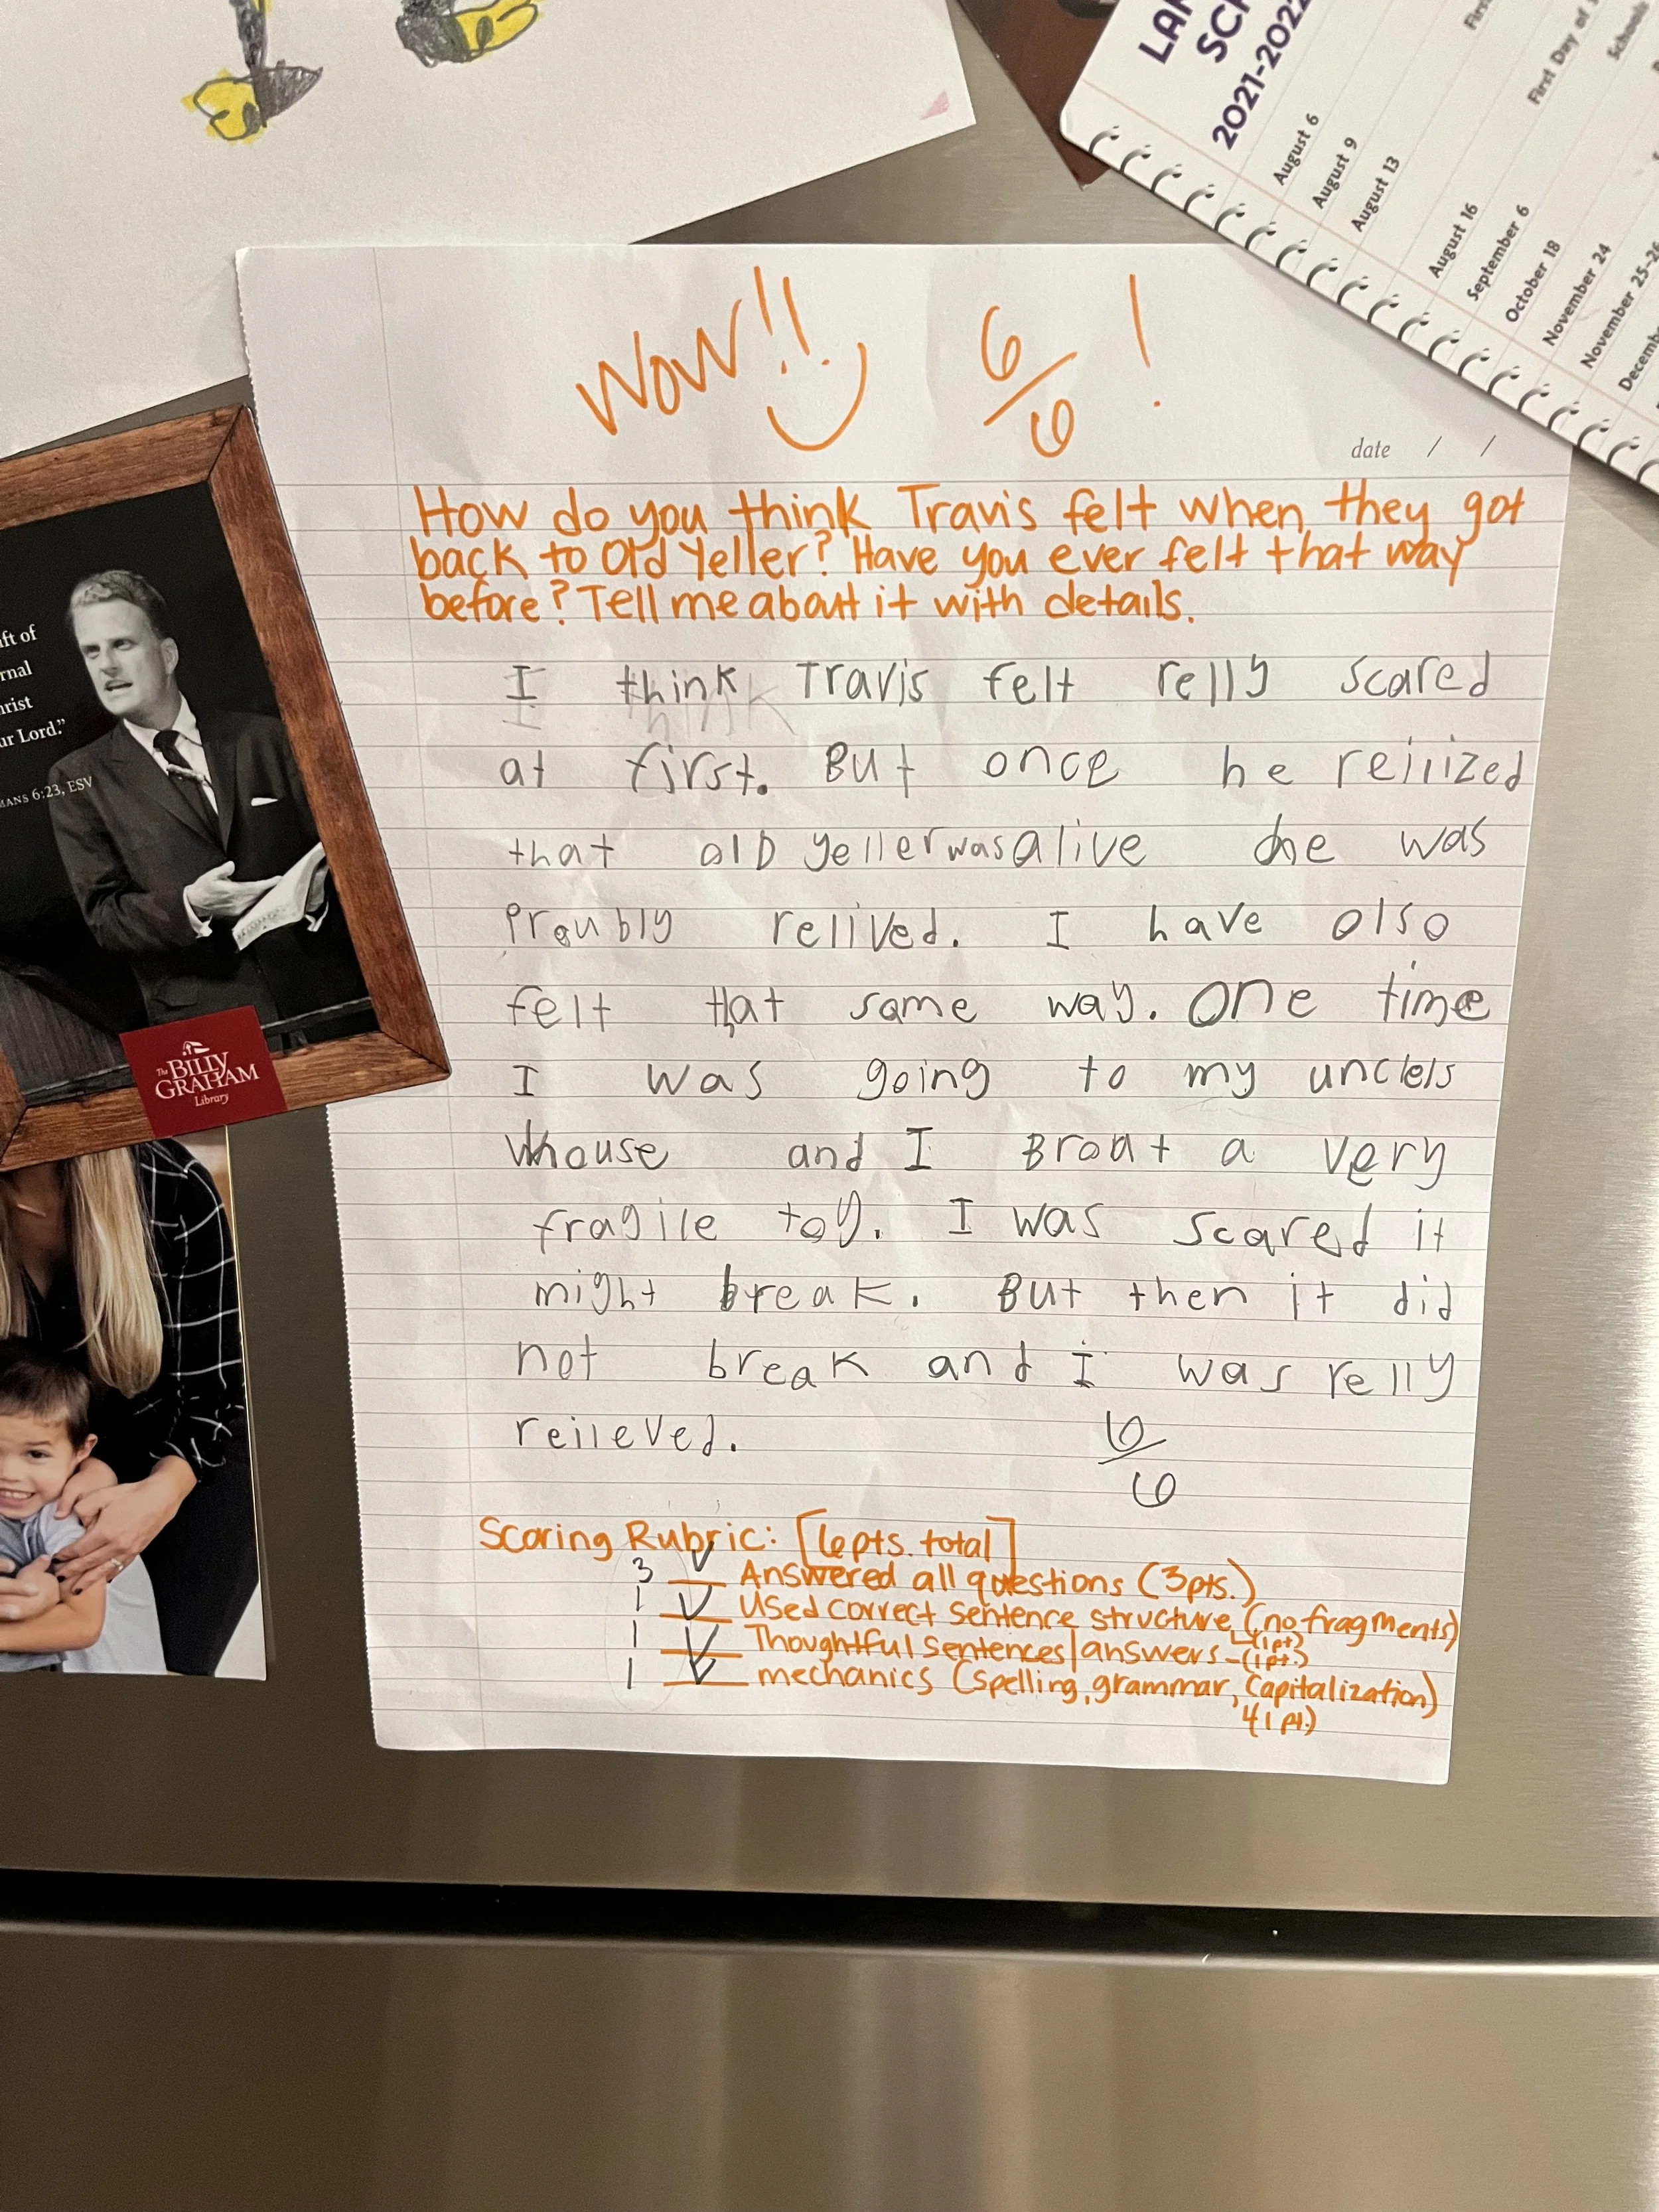 LAR
SCH
2021-2022
August 6
August 9
August 13
August 16
September 6
October 18
November 24
November 25-26
Decemb
First
First Day of
Schools
WOW!! 6/6!
date / /
How do you think Travis felt when they got
back to Old Yeller? Have you ever felt that way
before? Tell me about it with details.
I think Travis felt relly scared
at first. But once he reilized
that olD yeller was alive he was
Proubly relived. I have olso
felt that same way. One time
I was going to my uncle's
whouse and I Broat a very
fragile toy. I was scared it
might break. But then it did
not break and I was relly
reileved. 6/6
Scoring Rubric: [6pts. total]
3 Answered all questions (3pts.)
1 Used correct sentence structure (no fragments)
(1pt)
1 Thoughtful sentences/answers - (1pt.)
1 mechanics (spelling, grammar, Capitalization)
(1pt.)
ift of
rnal
hrist
ur Lord."
MANS 6:23, ESV
The BILLY
GRAHAM
Library